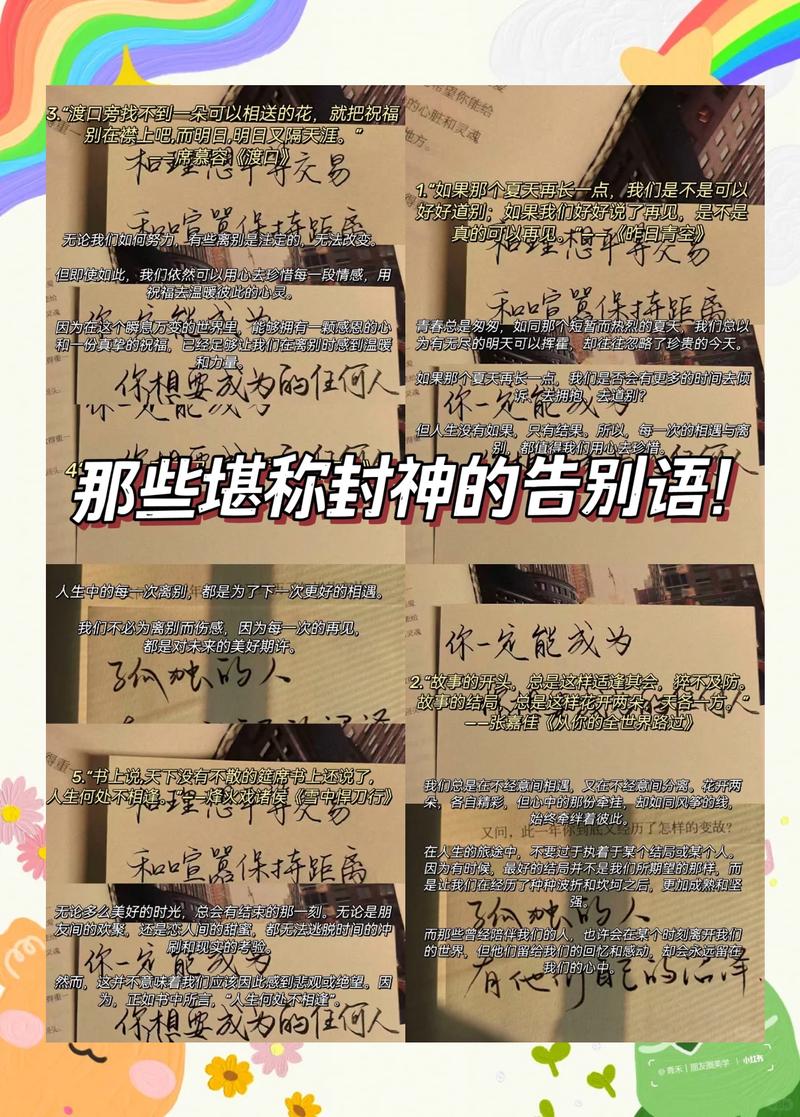 3.“渡口旁找不到一朵可以相送的花，就把祝福
别在襟上吧,而明日,明日又隔天涯。”
——席慕容《渡口》
和理想平等交易
和喧嚣保持距离
无论我们如何努力，有些离别是注定的，无法改变。
但即使如此，我们依然可以用心去珍惜每一段情感，用
祝福去温暖彼此的心灵。
因为在这个瞬息万变的世界里，能够拥有一颗感恩的心
和一份真挚的祝福，已经足够让我们在离别时感到温暖
和力量。
你想要成为的任何人
你一定能成为
希望你能给
的心脏和灵魂
地方。
1.“如果那个夏天再长一点，我们是不是可以
好好道别；如果我们好好说了再见，是不是
真的可以再见。”——《昨日青空》
和理想平等交易
和喧嚣保持距离
青春总是匆匆，如同那个短暂而热烈的夏天，我们总以
为有无尽的明天可以挥霍，却往往忽略了珍贵的今天。
如果那个夏天再长一点，我们是否会有更多的时间去倾
诉、去拥抱、去道别？
你一定能成为
但人生没有如果，只有结果。所以，每一次的相遇与离
别，都值得我们用心去珍惜。
4
那些堪称封神的告别语！
人生中的每一次离别，都是为了下一次更好的相遇。
我们不必为离别而伤感，因为每一次的再见，
都是对未来的美好期许。
孤独的人
你一定能成为
2.“故事的开头，总是这样适逢其会，猝不及防。
故事的结局，总是这样花开两朵，天各一方。”
——张嘉佳《从你的全世界路过》
5.“书上说,天下没有不散的筵席书上还说了,
人生何处不相逢。”——烽火戏诸侯《雪中悍刀行》
和理想平等交易
和喧嚣保持距离
无论多么美好的时光，总会有结束的那一刻。无论是朋
友间的欢聚，还是恋人间的甜蜜，都无法逃脱时间的冲
刷和现实的考验。
你一定能成为
然而，这并不意味着我们应该因此感到悲观或绝望。因
为，正如书中所言，“人生何处不相逢”。
你想要成为的任何人
我们总是在不经意间相遇，又在不经意间分离。花开两
朵，各自精彩，但心中的那份牵挂，却如同风筝的线，
始终牵绊着彼此。
又问，此一年你到底又经历了怎样的变故？
在人生的旅途中，不要过于执着于某个结局或某个人。
因为有时候，最好的结局并不是我们所期望的那样，而
是让我们在经历了种种波折和坎坷之后，更加成熟和坚
强。
孤独的人
而那些曾经陪伴我们的人，也许会在某个时刻离开我们
的世界，但他们留给我们的回忆和感动，却会永远留在
我们的心中。
有他们自己的沼泽.
@青禾｜朋友圈美学 | 小红书